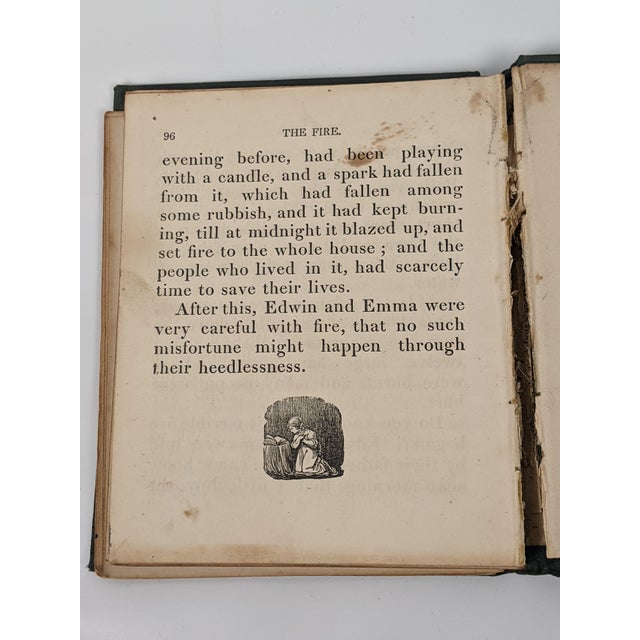 96 THE FIRE.
evening before, had been playing
with a candle, and a spark had fallen
from it, which had fallen among
some rubbish, and it had kept burn-
ing, till at midnight it blazed up, and
set fire to the whole house ; and the
people who lived in it, had scarcely
time to save their lives.
After this, Edwin and Emma were
very careful with fire, that no such
misfortune might happen through
their heedlessness.